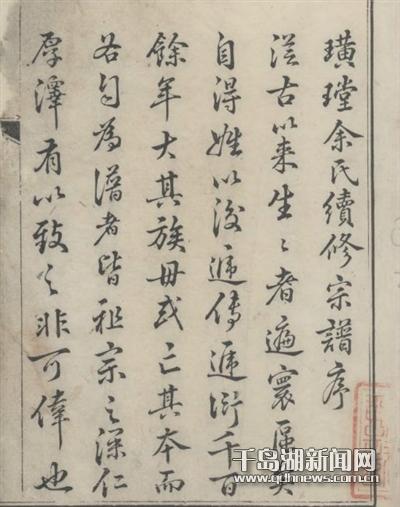 璜瑝余氏續修宗譜序
從古以来生〻者遍寰區矣
自得姓以後遞傳遞衍千百
餘年大其族毋或亡其本而
各自為譜者皆祖宗之深仁
厚澤有以致之非可倖也
千岛湖新闻网
www.qdhnews.com.cn